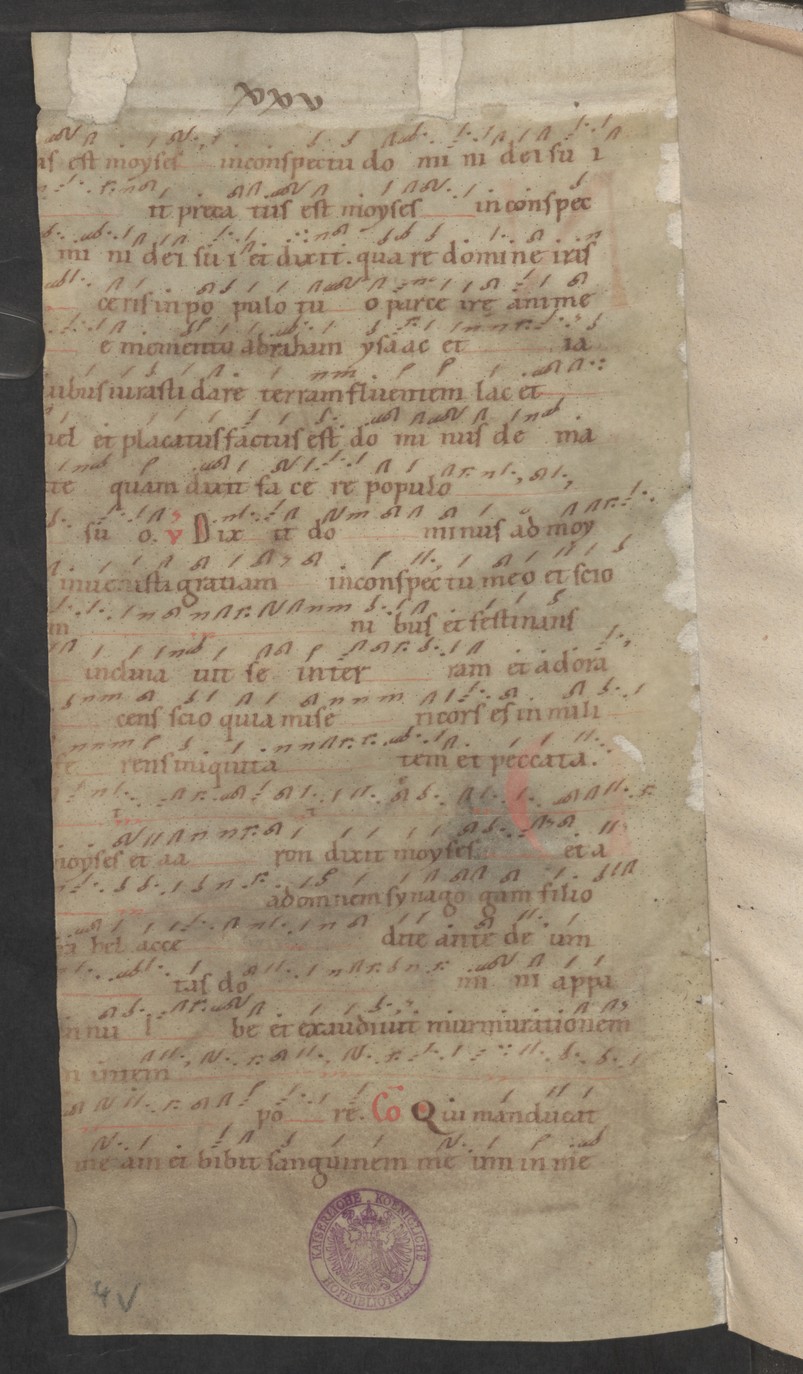 xxv
us est moyses in conspectu do mi ni dei su i
it preca tus est moyses in conspec
mi ni dei su i et dixit. qua re domine iris
ceris in po pulo tu o parce ire anime
e memento abraham ysaac et ia
uibus iurasti dare terram fluentem lac et
mel et placatus factus est do mi nus de ma
te quam dixit fa ce re populo
su o. v Dix it do minus ad moy
inuenisti gratiam in conspectu meo et scio
m ni bus et festinans
inclina uit se in ter ram et adora
cens scio quia mise ricors es in mili
fe rens iniquita tem et peccata.
moyses et aa ron dixit moyses et a
ad omnem synago gam filio
ra hel acce dite ante de um
tas do mi ni appa
in nu be et exaudiuit murmurationem
in intem
po re. Co Qui manducat
me am et bibit sanguinem me um in me
KAISERLICHE KOENIGLICHE HOFBIBLIOTHEK
4v